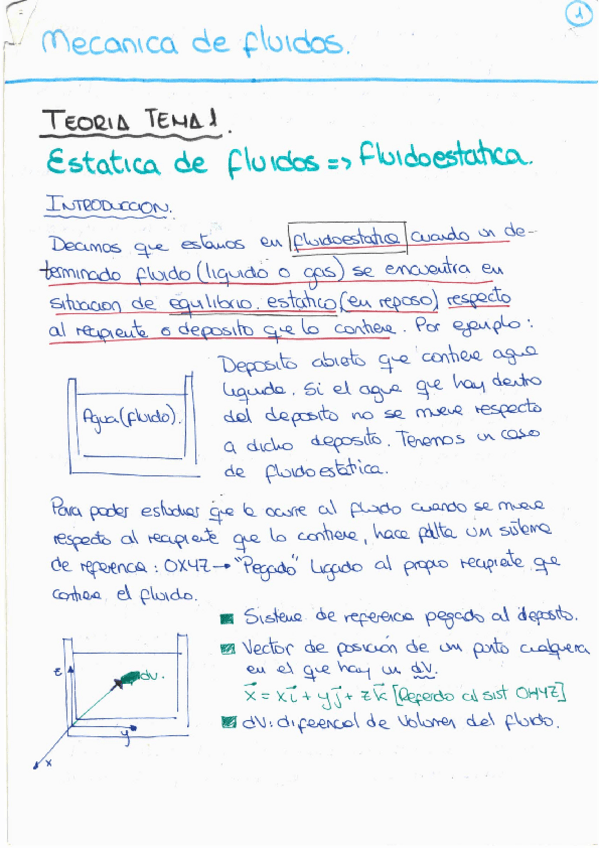 1
Mecanica de fluidos.
TEORIA TEMA 1.
Estatica de fluidos => Fluidoestatica.
INTRODUCCION.
Decimos que estamos en fluidoestatica cuando un de-
terminado fluido (liquido o gas) se encuentra en
situacion de equilibrio estatico (en reposo) respecto
al recipiente o deposito que lo contiene. Por ejemplo:
Deposito abierto que contiene agua
liquida. Si el agua que hay dentro
del deposito no se mueve respecto
a dicho deposito. Tenemos un caso
de fluidoestatica.
Agua (fluido).
Para poder estudiar que le ocurre al fluido cuando se mueve
respecto al recipiente que lo contiene, hace falta un sistema
de referencia: OXYZ → "Pegado" ligado al propio recipiente que
contiene el fluido.
Sistema de referencia pegado al deposito.
Vector de posición de un punto cualquiera
en el que hay un dV.
x⃗ = xi⃗ + yj⃗ + zk⃗ [Referido al sist OXYZ]
dV: diferencial de volumen del fluido.
z
dV.
y
x